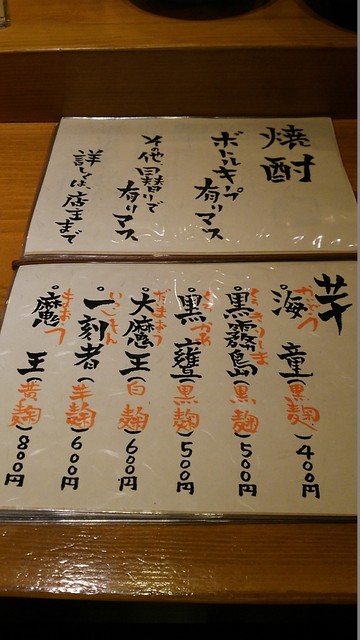 焼酎
ボトルキープ
有リマス
その他、日替りで
有リマス
詳しくは、店主まで
芋
海童(黒麹)400円
かいどう
黒霧島(黒麹)500円
くろきりしま
黒甕(黒麹)500円
くろかめ
大魔王(白麹)600円
だいまおう
一刻者(芋麹)600円
いっこもん
魔王(黄麹)800円
まおう